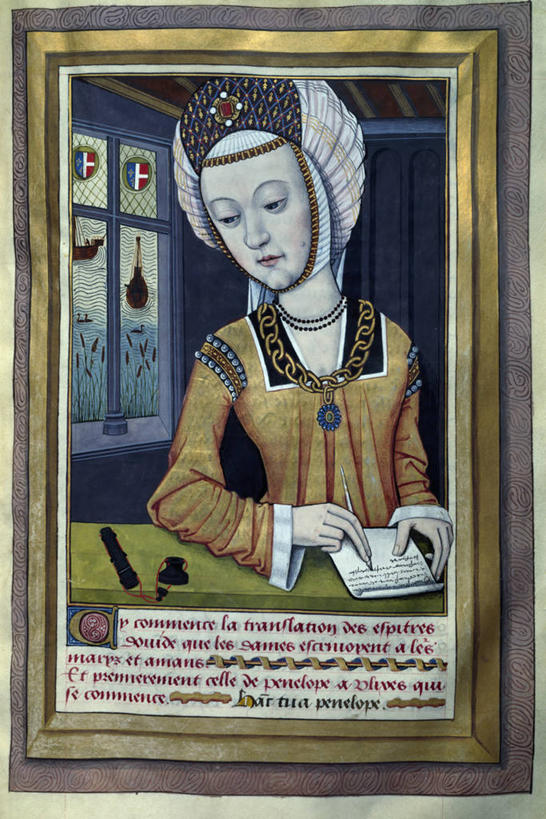 Cy commence la translation des espitres
douide que les dames escriuoyent a le͂s
marys et amans
Et premierement celle de penelope a vlixes qui
se commence. Hãc tua penelope.